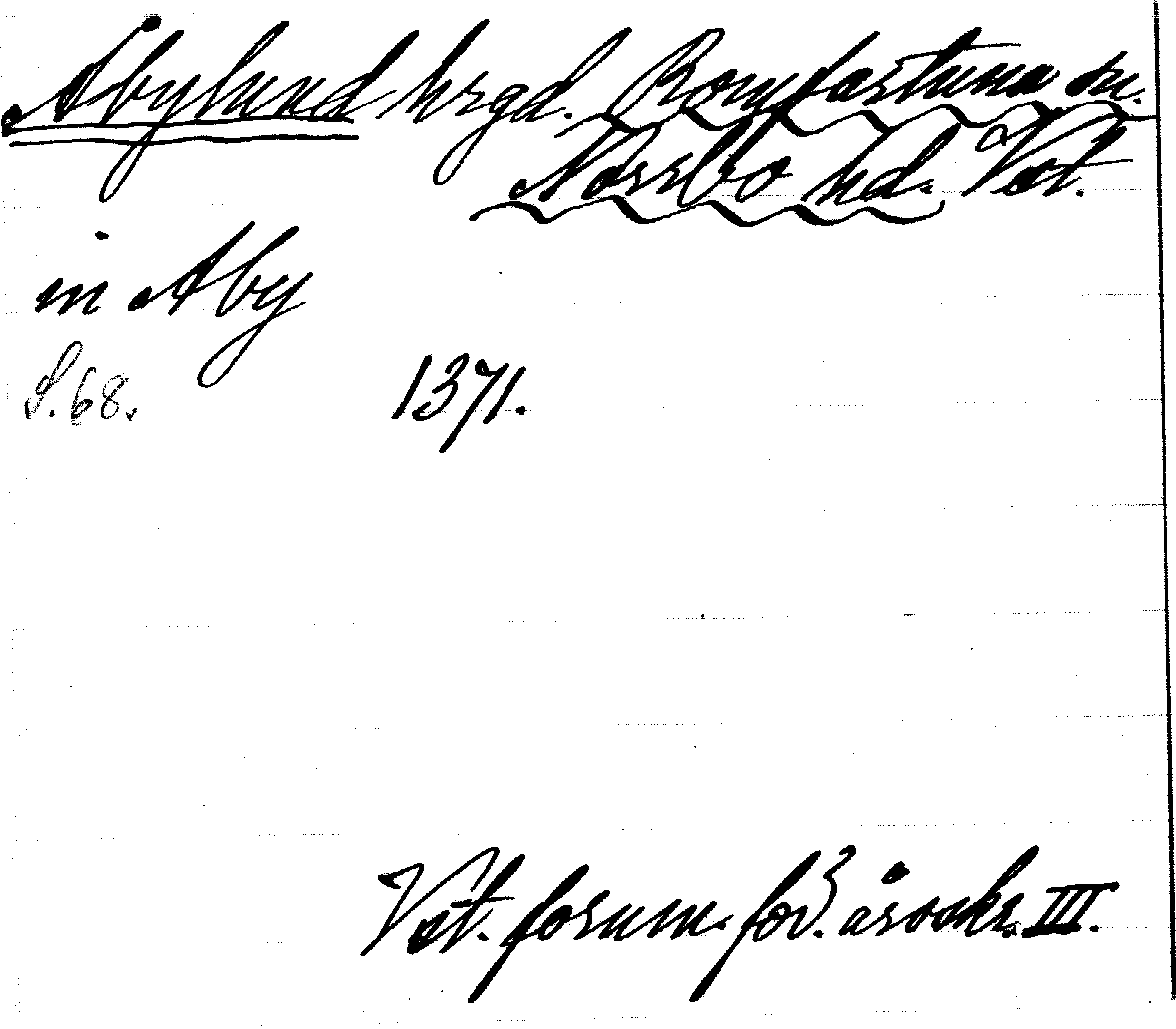 Åbylund hrgd. Romfartuna sn.
Norrbo hd. Vstm.
in Aby
S. 68. 1371.
Vst. fornm. för. årsskr. III.